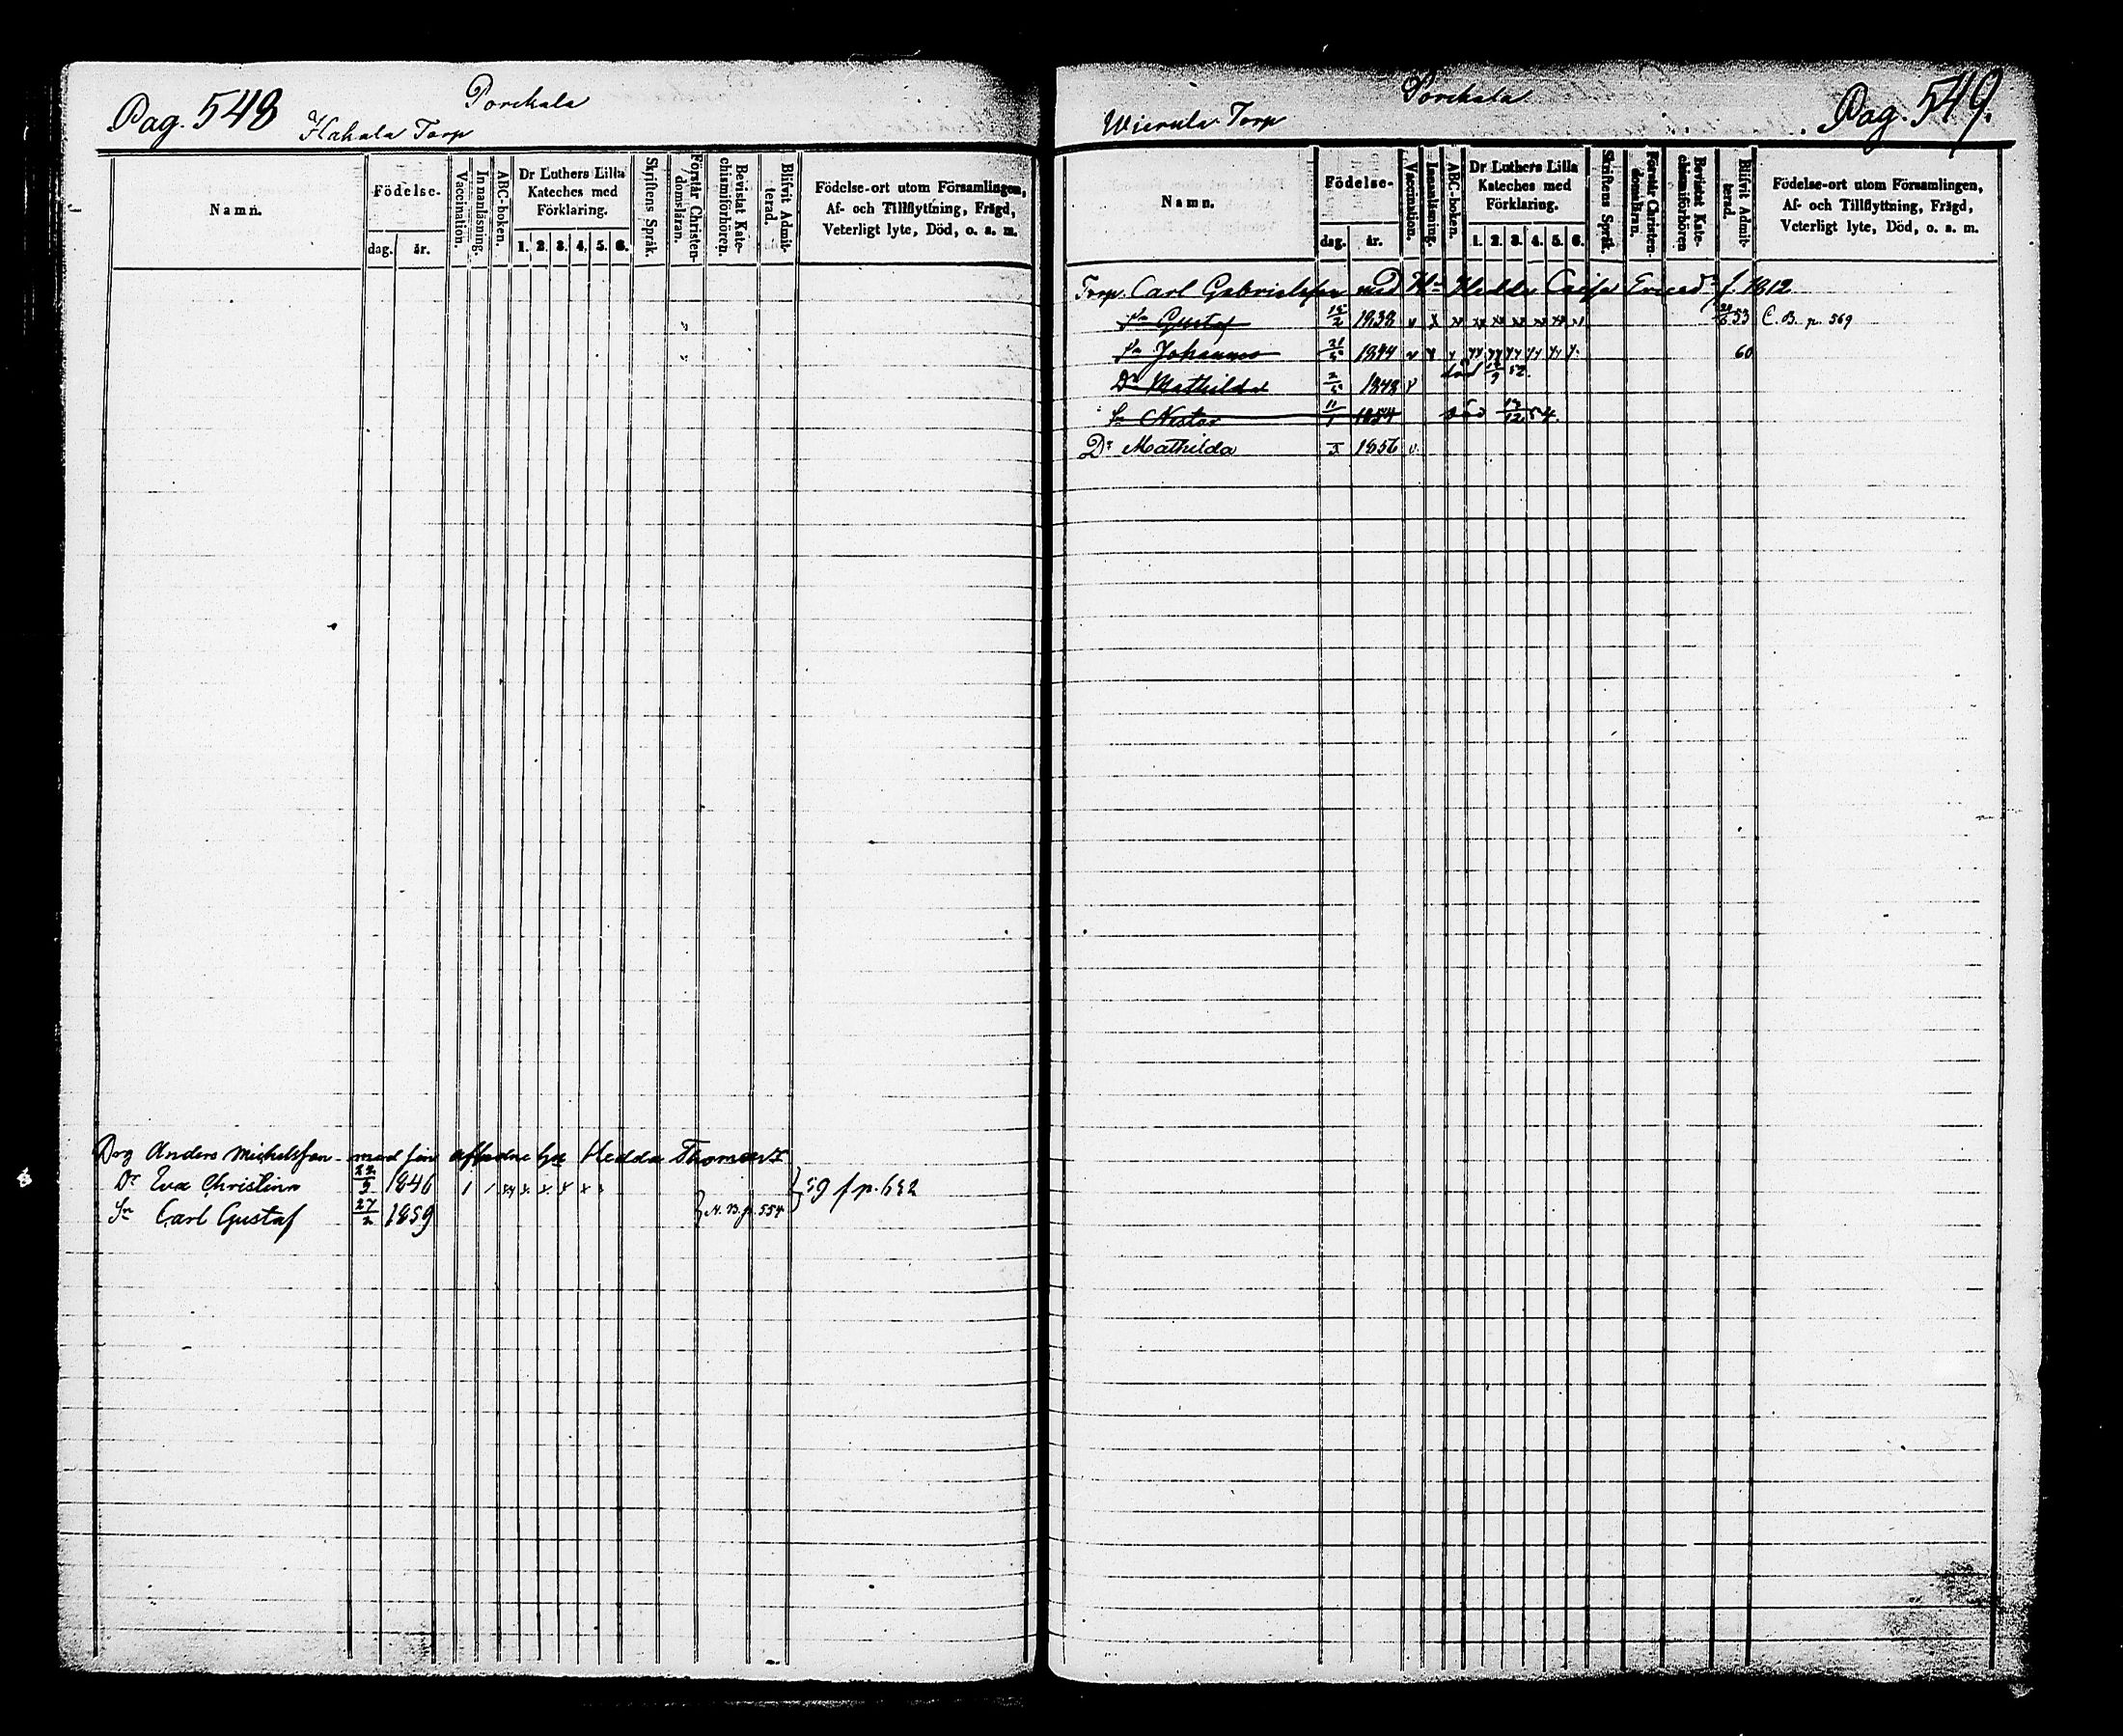 Pag. 548
Porckala
Hakala Torp
Namn.
Födelse-
dag.
år.
Vaccination.
Innanläsning.
ABC-boken.
Dr Luthers Lilla
Kateches med
Förklaring.
1. 2. 3. 4. 5. 6.
Skriftens Språk.
Förstår Christen-
domsläran.
Bevistat Kate-
chismiförhören.
Blifvit Admit-
terad.
Födelse-ort utom Församlingen,
Af- och Tillflyttning, Frägd,
Veterligt lyte, Död, o. s. m.
Drg Anders Michelsson med sin hu Hedda
Dr Eva Christina 22/9 1846
Sn Carl Gustaf 27/2 1859 N. B. p. 554
p. 632
Porckala
Pag. 549.
Wierula Torp
Namn.
Födelse-
dag.
år.
Vaccination.
Innanläsning.
ABC-boken.
Dr Luthers Lilla
Kateches med
Förklaring.
1. 2. 3. 4. 5. 6.
Skriftens Språk.
Förstår Christen-
domsläran.
Bevistat Kate-
chismiförhören
Blifvit Admit-
terad.
Födelse-ort utom Församlingen,
Af- och Tillflyttning, Frägd,
Veterligt lyte, Död, o. s. m.
Torp. Carl Gabrielsson med Hu Hedda Caisa Ericsdr f. 1812
Sn Gustaf 1838 53 C. B. p. 569
Sn Johannes 1844 60
Dr Mathilda 1848 död 52
Sn Nestor 11/1 1854 död 13/12 54.
Dr Mathilda 1856